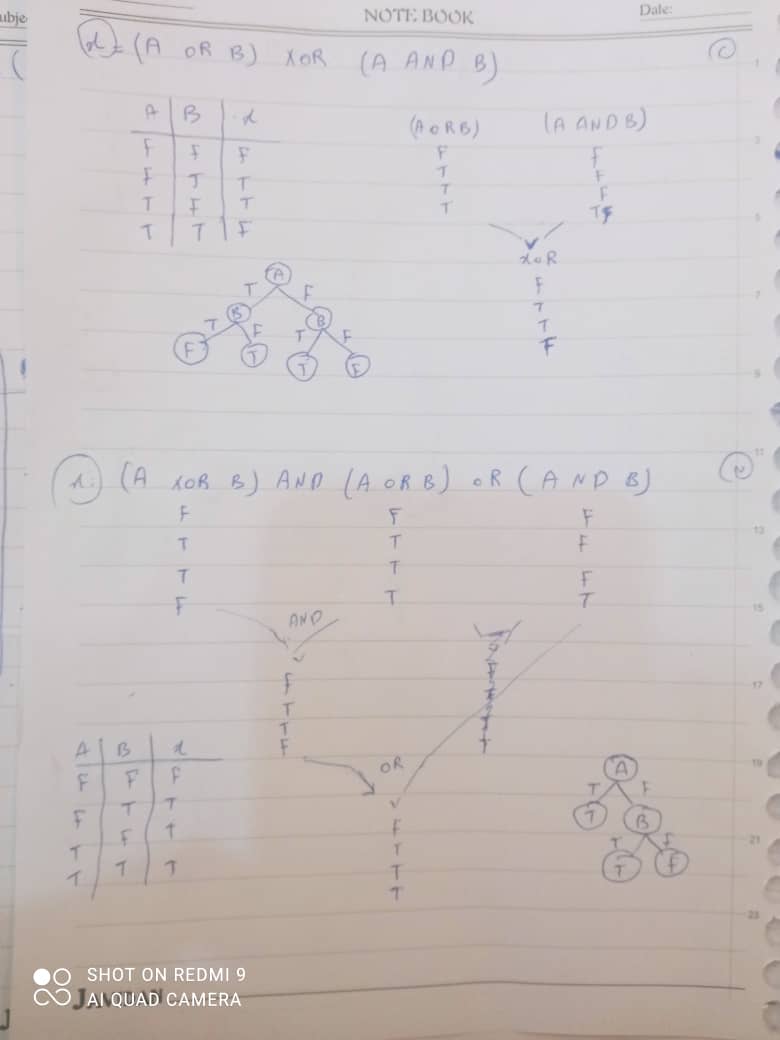 ubje
NOTE BOOK
Date:
x = (A OR B) XOR (A AND B)
C
A B x
F F F
F T T
T F T
T T F
(A OR B) (A AND B)
F F
T F
T F
T T
XOR
F
T
T
F
A
T F
B B
T F T F
F T T F
x: (A XOR B) AND (A OR B) OR (A AND B)
F F F
T T F
T T F
F T T
AND
F
T
T
F
OR
F
T
T
T
A B x
F F F
F T T
T F T
T T T
A
T F
T B
T F
T F
1
3
5
7
9
11
13
15
17
19
21
23
SHOT ON REDMI 9
AI QUAD CAMERA